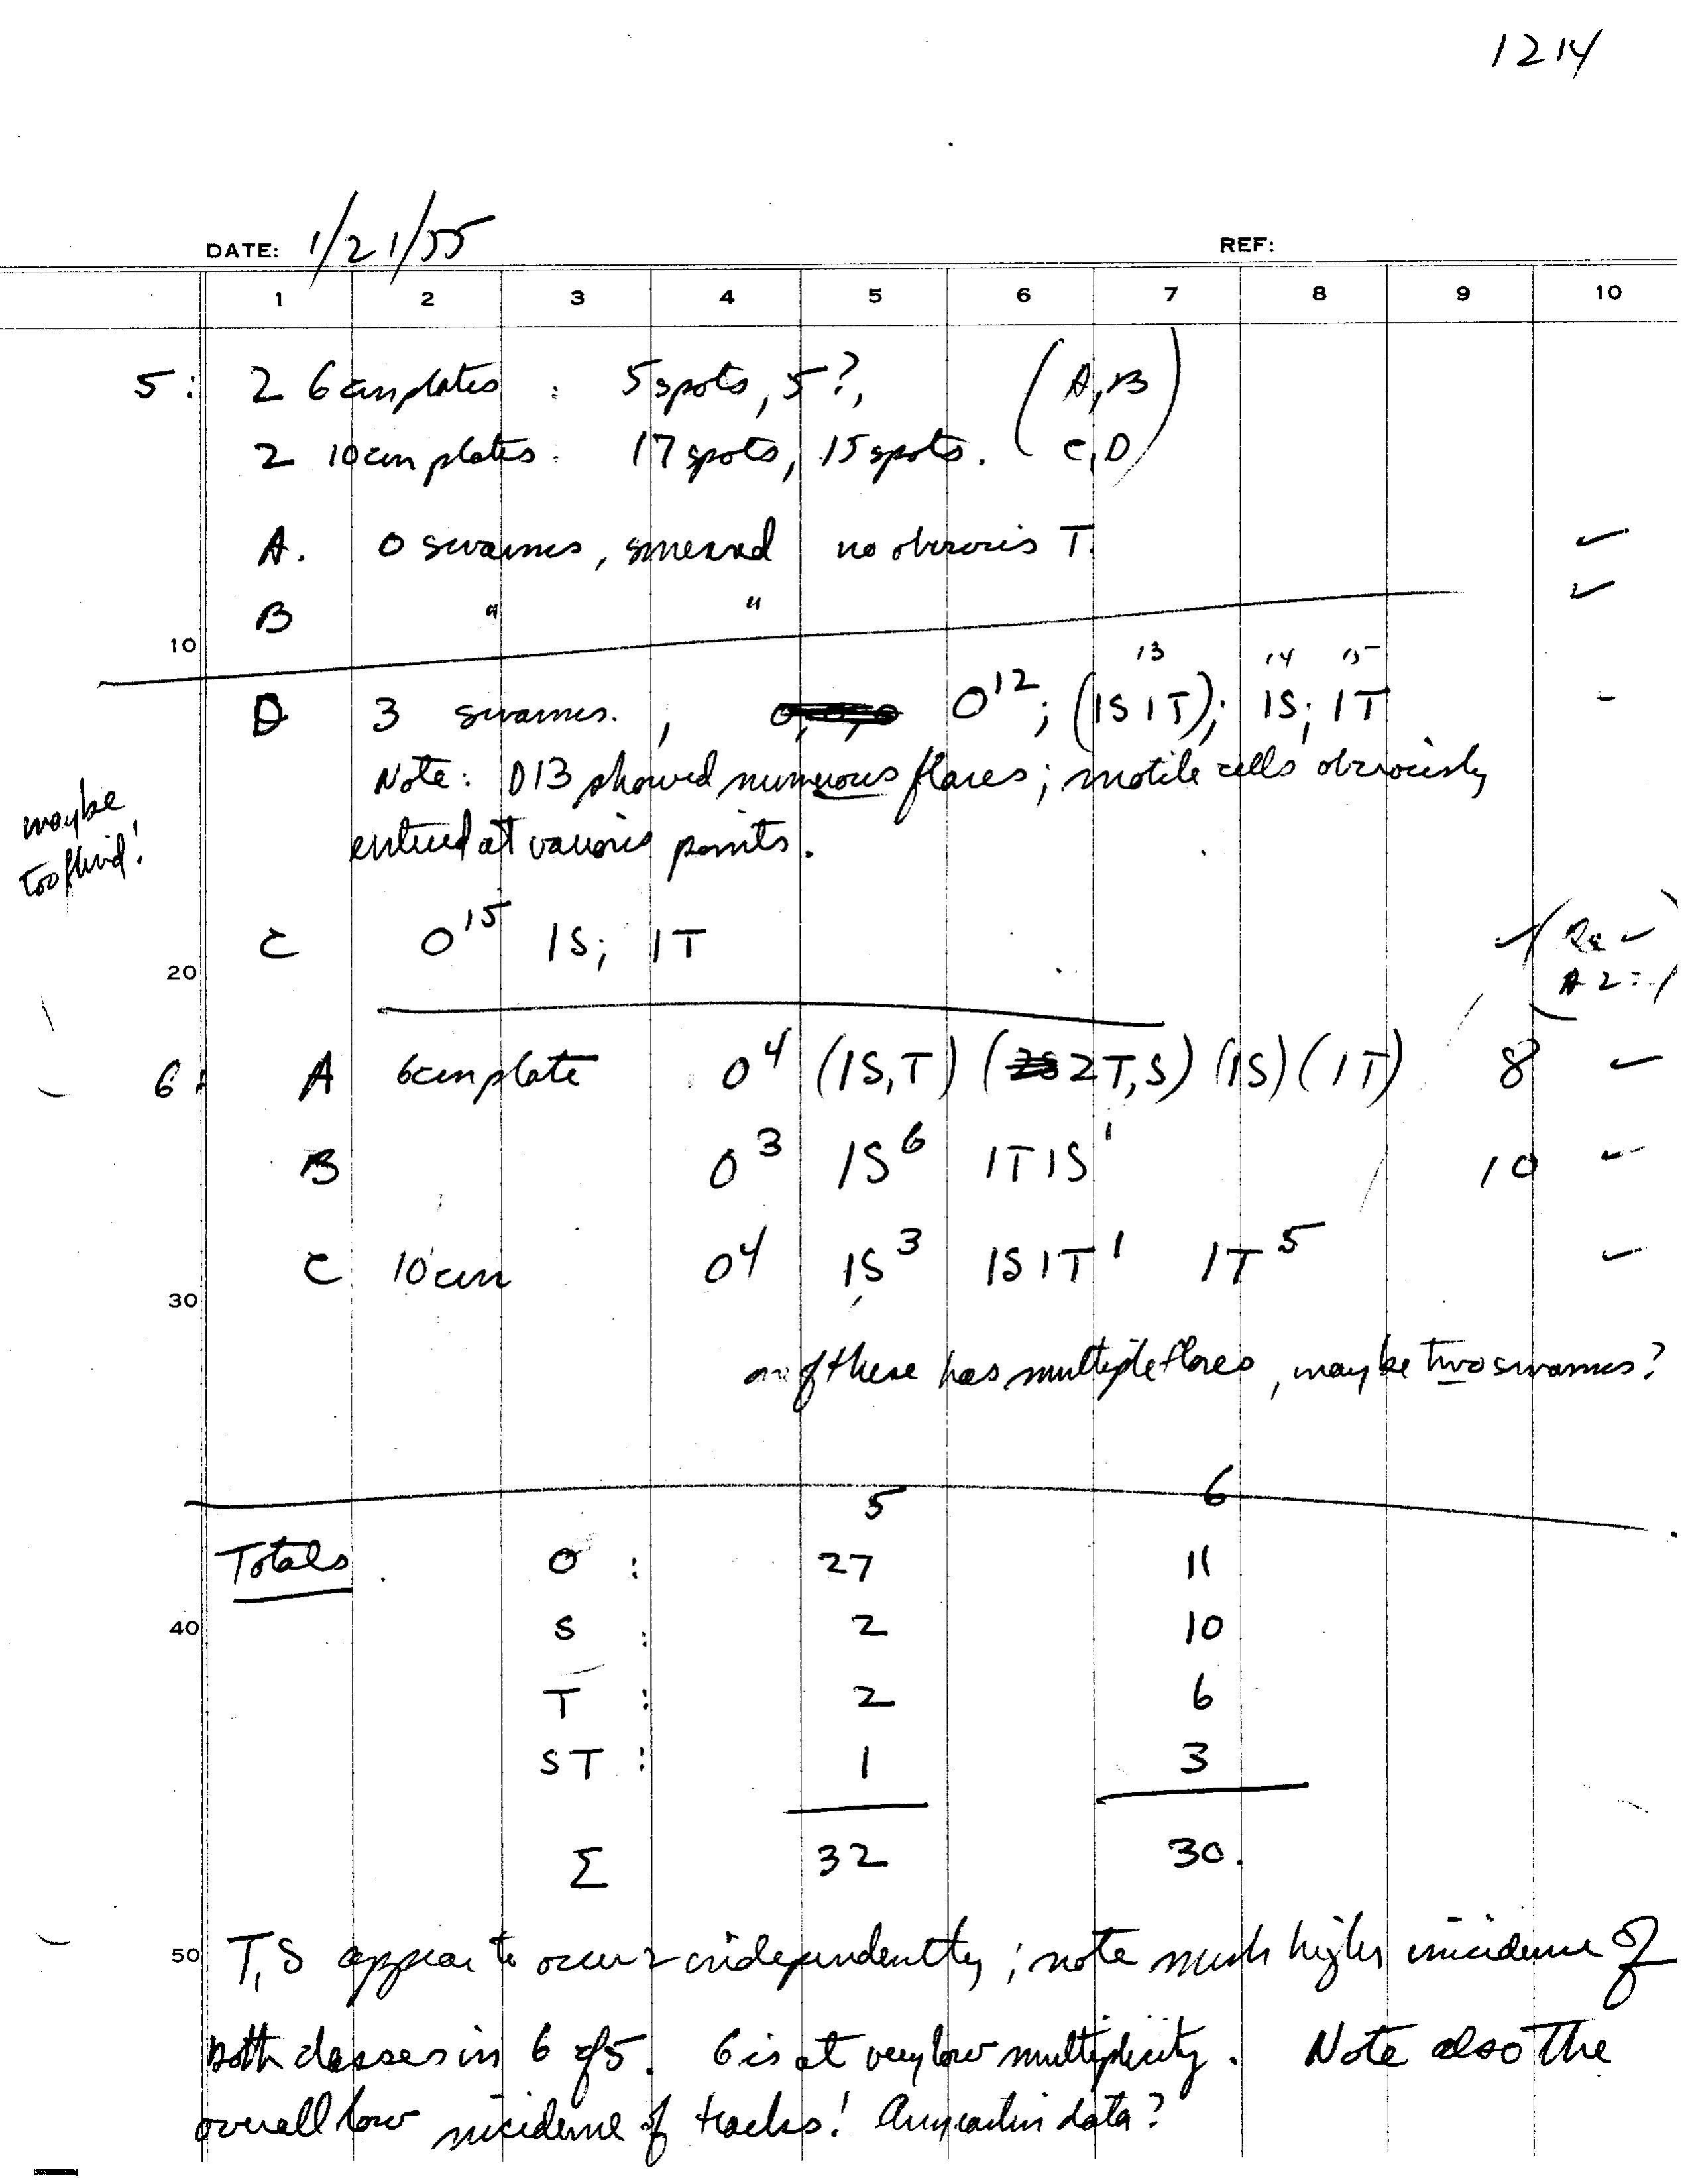 1214
DATE: 1/21/55 REF:
1 2 3 4 5 6 7 8 9 10
5: 2 6cm plates : 5 spots, 5?, (A,B
2 10cm plates: 17 spots, 15 spots. C,D)
A. 0 swarms, smeared no obvious T. ✓
B " " ✓
10
13 14 15
D 3 swarms. , O¹²; (1S 1T); 1S; 1T -
Note: D13 showed numerous flares; motile cells obviously
entered at various points.
maybe
too fluid!
C O¹⁵ 1S; 1T ✓ (Re ✓
20 A2=1
6: A 6cm plate O⁴ (1S,T) (2T,S) (1S) (1T) 8 ✓
B O³ 1S⁶ 1T1S¹ 10 ✓
C 10cm O⁴ 1S³ 1S1T¹ 1T⁵ ✓
30
one of these has multiple flares, maybe two swarms?
5 6
Totals O : 27 11
40 S : 2 10
T : 2 6
ST : 1 3
Σ 32 30.
50 T,S appear to occur independently; note much higher incidence of
both classes in 6 cf 5. 6 is at very low multiplicity. Note also the
overall low incidence of tracks! Any earlier data?